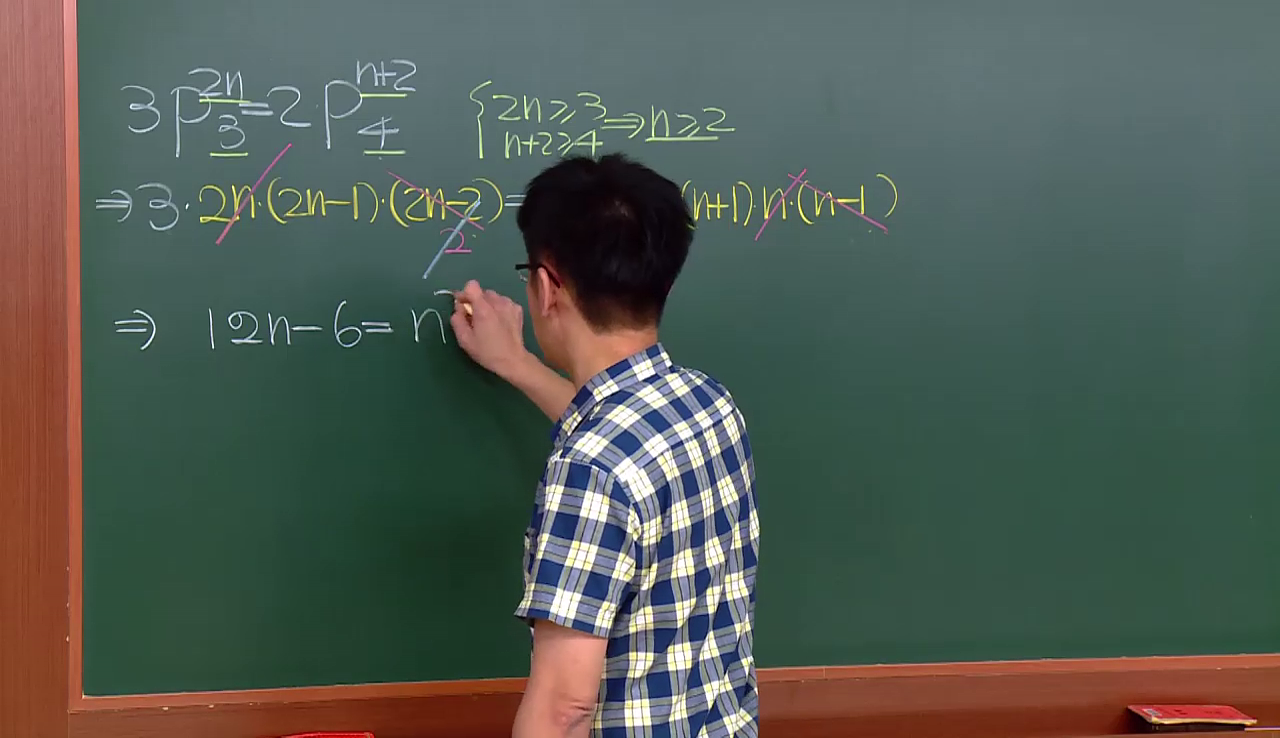 3P^{2n}_{3}=2·P^{n+2}_{4} { 2n≥3 n+2≥4 ⇒ n≥2
⇒ 3·2n·(2n-1)·(2n-2)= (n+1)·n·(n-1)
2
⇒ 12n-6= n